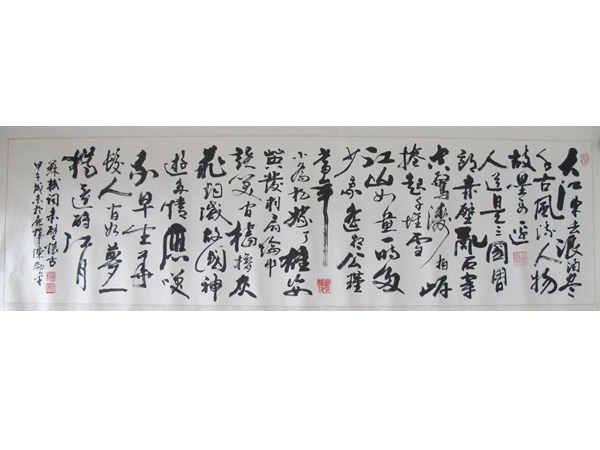 大江东去浪淘尽
千古風流人物
故壘西邊
人道是三國周
郎赤壁亂石穿
空驚濤拍岸
捲起千堆雪
江山如畫一時多
少豪遥想公瑾
當年
小喬初嫁了雄姿
英發羽扇綸巾
談笑間檣櫓灰
飛烟滅故國神
遊多情應笑
我早生華
髮人間如夢一
樽還酹江月
蘇軾詞赤壁懷古
甲午